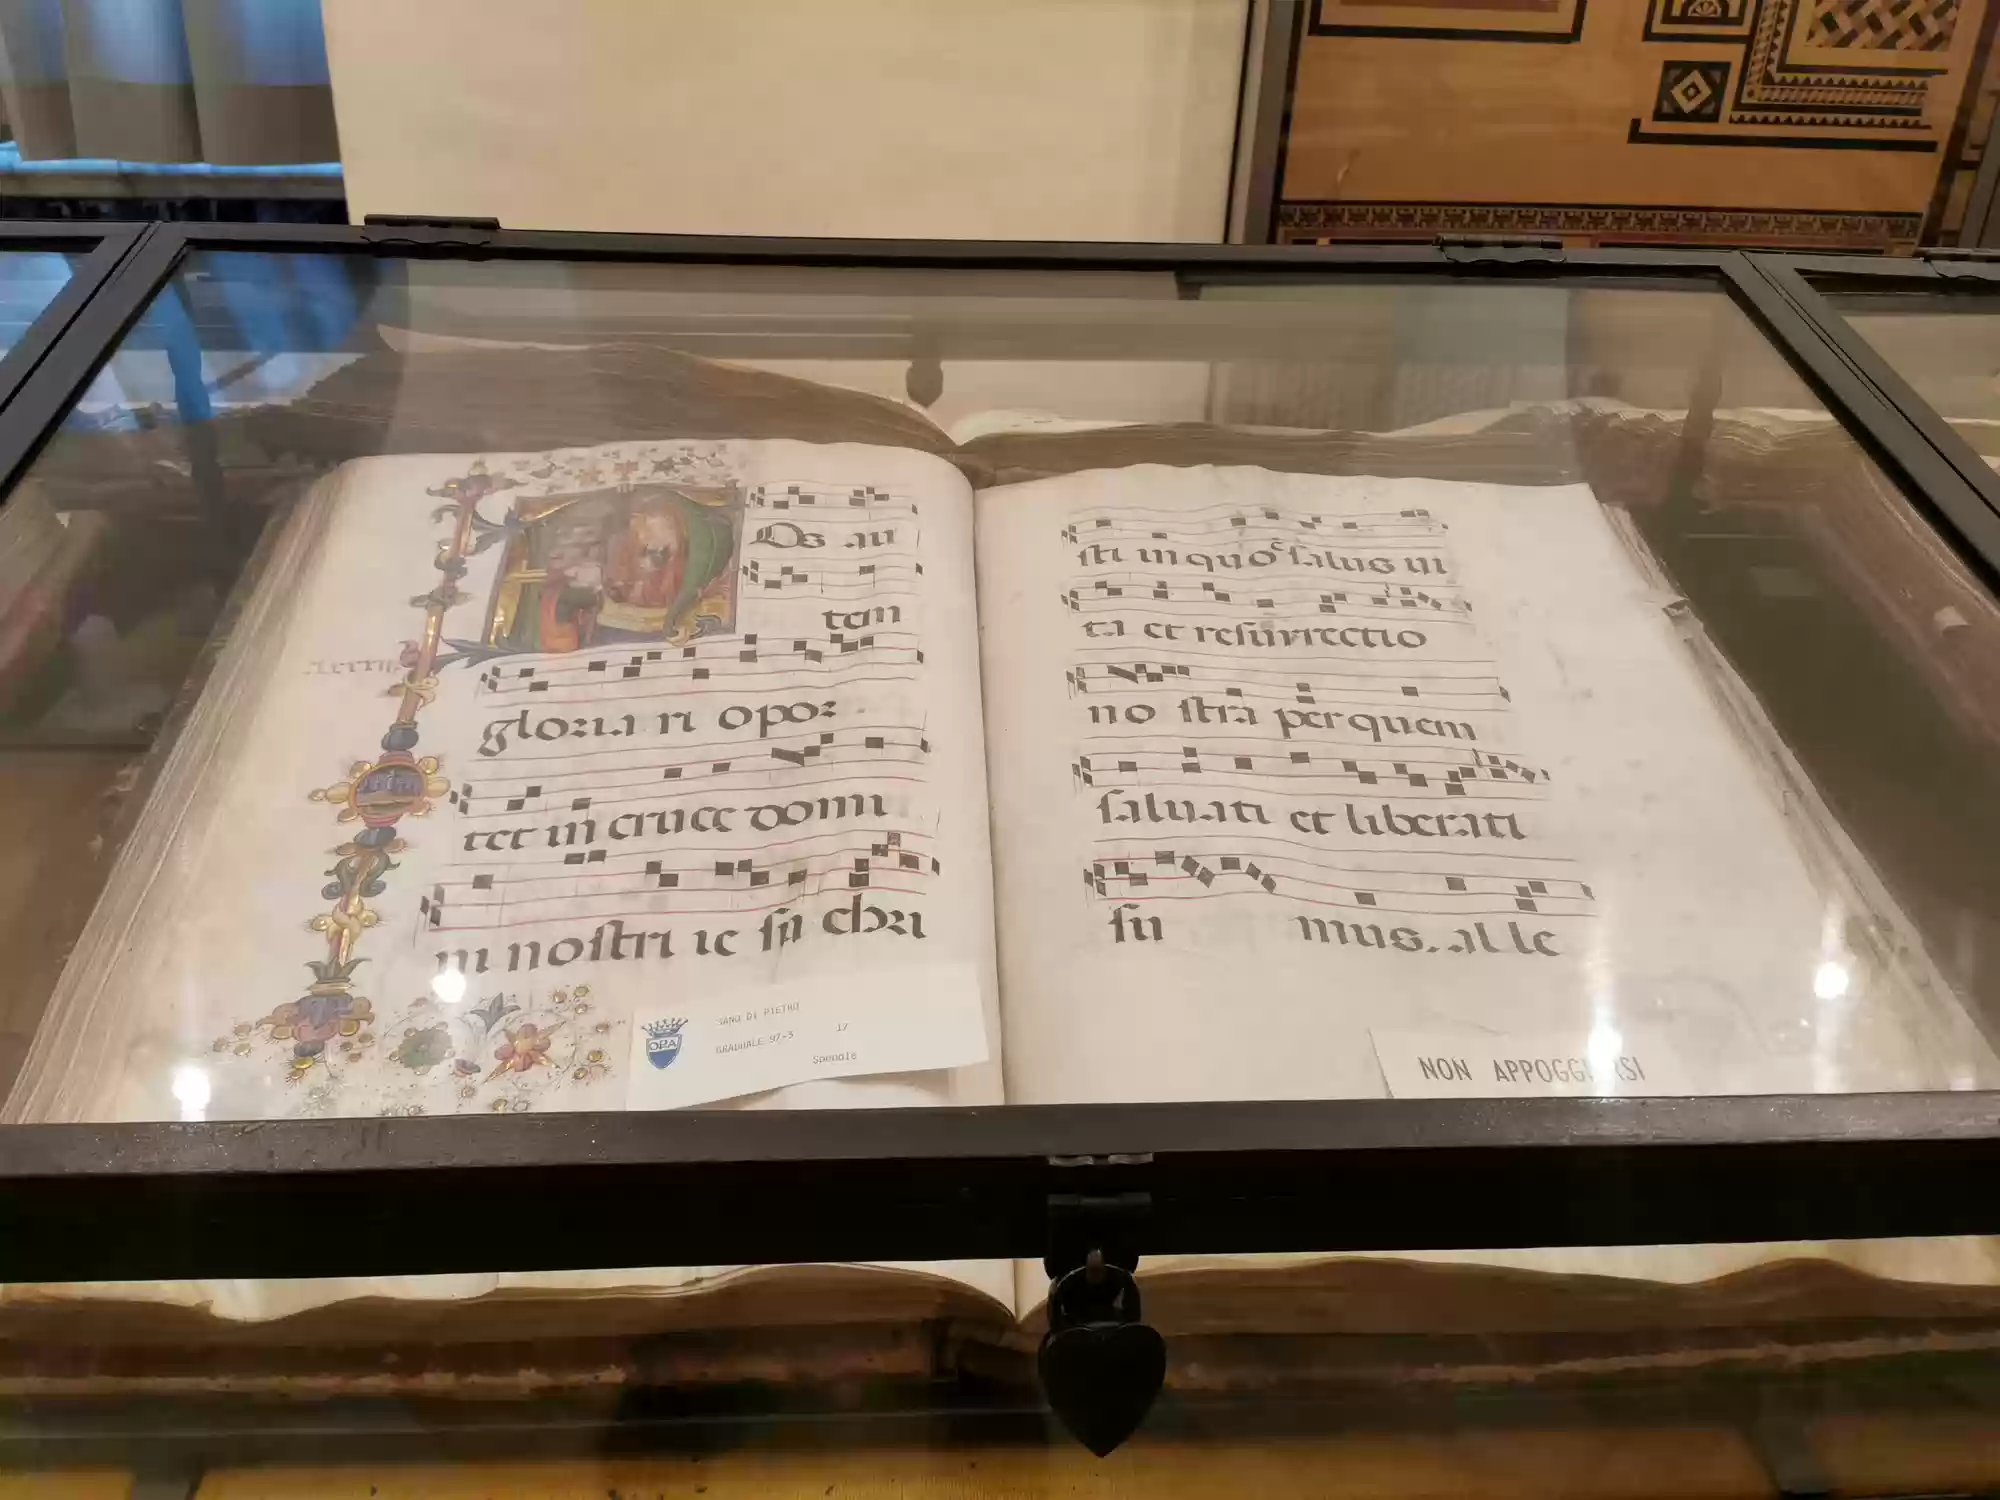 Os au
tem
gloria ri opor
tet in cruce domi
ni nostri ie su chri
sti in quo ē salus ui
ta et resurrectio
no stra per quem
saluati et liberati
su mus. al le
OPA
SANO DI PIETRO
GRADUALE 97-3 17
NON APPOGGIARSI